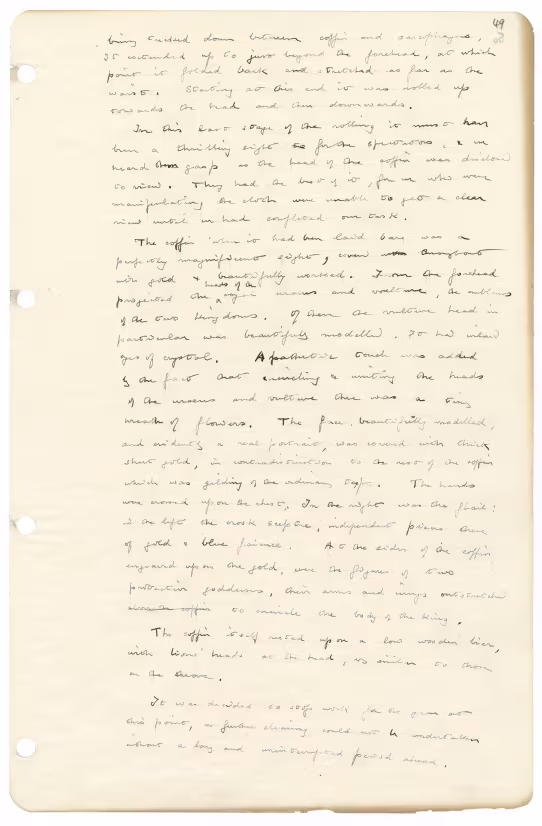 49
being tucked down between coffin and sarcophagus.
It extended up to just beyond the forehead, at which
point it folded back and stretched as far as the
waist. Starting at this end it was rolled up
towards the head and then downwards.
In this last stage of the rolling it must have
been a thrilling sight for the spectators, & we
heard them gasp as the head of the coffin was disclosed
to view. They had the best of it, for we who were
manipulating the cloth were unable to get a clear
view until we had completed our task.
The coffin when it had been laid bare was a
perfectly magnificent sight, cover throughout
with gold & beautifully worked. From the forehead
projected the heads of the royal uraeus and vulture, the emblems
of the two kingdoms. Of them the vulture head in
particular was beautifully modelled. It had inlaid
eyes of crystal. A pathetic touch was added
by the fact that encircling & uniting the heads
of the uraeus and vulture there was a tiny
wreath of flowers. The face, beautifully modelled,
and evidently a real portrait, was covered with thick
sheet gold, in contradistinction to the rest of the coffin
which was gilding of the ordinary type. The hands
were crossed upon the chest. In the right was the flail:
in the left the crook sceptre, independent pieces these
of gold & blue faience. At the sides of the coffin
engraved upon the gold, were the figures of two
protective goddesses, their arms and wings outstretched
to encircle the body of the King.
The coffin itself rested upon a low wooden bier,
with lions' heads at the head, similar to those
on the throne.
It was decided to stop work for the year at
this point, as further clearing could not be undertaken
without a long and uninterrupted period ahead.